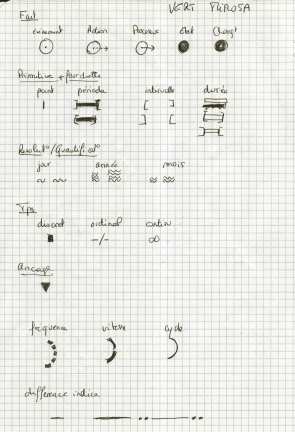 VERT TUROSA
Fait
événement Action Processus Etat Changt
Primitive temporelle
point période intervalle durée
Résolut°/Quantificat°
jour année mois
Tps
discret ordinal continu
-/- ∞
ancrage
fréquence vitesse cycle
différence indice